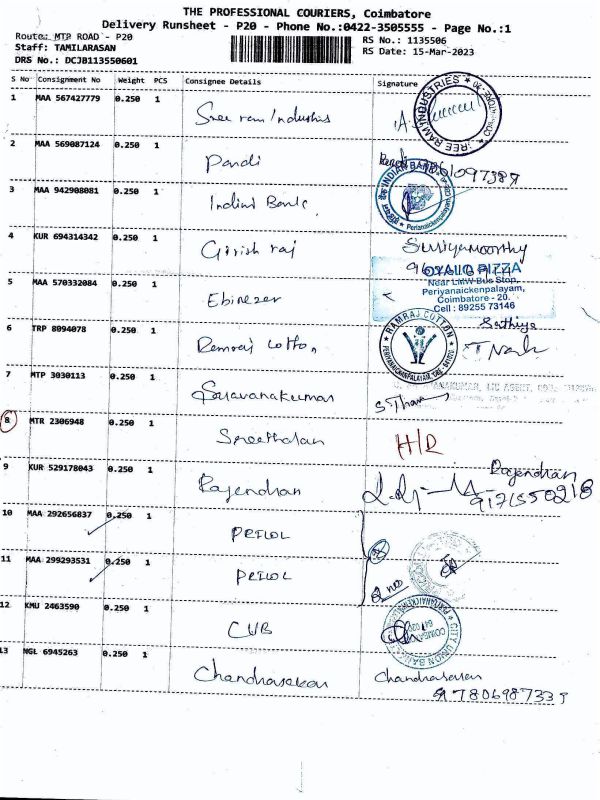 THE PROFESSIONAL COURIERS, Coimbatore
Delivery Runsheet - P20 - Phone No.:0422-3505555 - Page No.:1
Route: MTP ROAD - P20
RS No.: 1135506
Staff: TAMILARASAN
RS Date: 15-Mar-2023
DRS No.: DCJB113550601
S No Consignment No Weight PCS Consignee Details Signature
1 MAA 567427779 0.250 1 Sree ram Industries
SREE RAM INDUSTRIES
2 MAA 569087124 0.250 1 Pandi
3 MAA 942908081 0.250 1 Indian Bank
INDIAN BANK
Periyanaickenpalayam
4 KUR 694314342 0.250 1 Girish raj Suriyamoorthy
5 MAA 570332084 0.250 1 Ebinezer
OVALIO PIZZA
Near LMW Bus Stop,
Periyanaickenpalayam,
Coimbatore - 20.
Cell : 89255 73146
6 TRP 8094078 0.250 1 Ramraj Cotton Sathiya
RAMRAJ COTTON
7 MTP 3030113 0.250 1 Saravanakumar
8 MTR 2306948 0.250 1 Sreetharan H/D
9 KUR 529178043 0.250 1 Rajendhan Rajendhan
10 MAA 292656837 0.250 1 PRICOL
11 MAA 299293531 0.250 1 PRICOL
2 nos
12 KMU 2463590 0.250 1 CUB
CITY UNION BANK
13 NGL 6945263 0.250 1 Chandrasekar